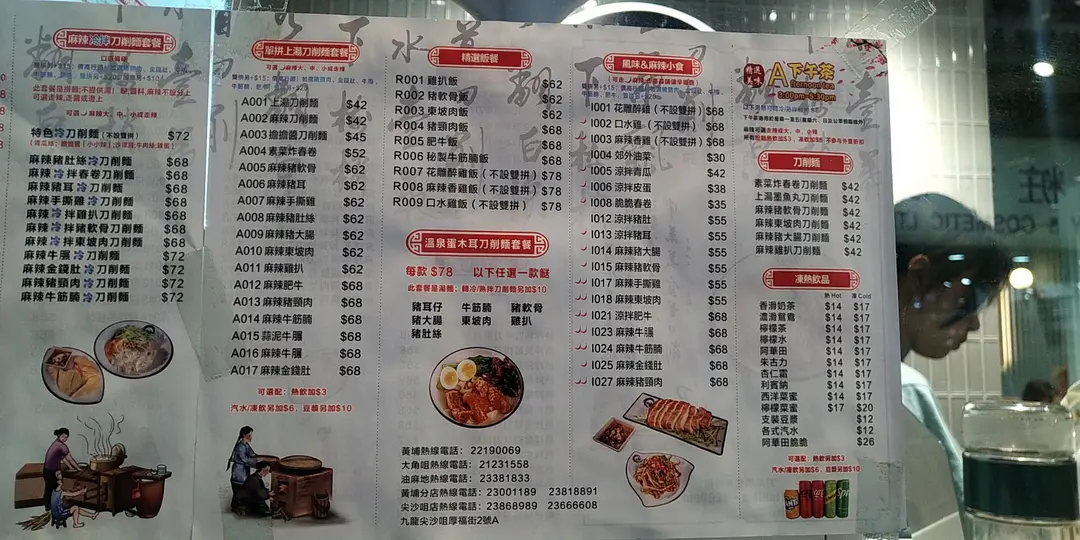 麻辣冷拌刀削麵套餐
可選走麻辣, 走麵或邊上
特色冷刀削麵 (不設雙拼) $72
麻辣豬肚絲冷刀削麵 $68
麻辣冷拌春卷刀削麵 $68
麻辣豬耳冷刀削麵 $68
麻辣手撕雞冷刀削麵 $68
麻辣冷拌雞扒刀削麵 $68
麻辣冷拌豬軟骨刀削麵 $68
麻辣冷拌東坡肉刀削麵 $68
麻辣牛腒冷刀削麵 $72
麻辣金錢肚冷刀削麵 $72
麻辣牛筋腩冷刀削麵 $72
單拼上湯刀削麵套餐
A001 上湯刀削麵 $42
A002 麻辣刀削麵 $42
A003 擔擔醬刀削麵 $45
A004 素菜炸春卷 $52
A005 麻辣豬軟骨 $62
A006 麻辣豬耳 $62
A007 麻辣手撕雞 $62
A008 麻辣豬肚絲 $62
A009 麻辣豬大腸 $62
A010 麻辣東坡肉 $62
A011 麻辣雞扒 $62
A012 麻辣肥牛 $68
A013 麻辣豬頸肉 $68
A014 麻辣牛筋腩 $68
A015 蒜泥牛腒 $68
A016 麻辣牛腒 $68
A017 麻辣金錢肚 $68
可選配：熱飲加$3
汽水/凍飲另加$6，豆漿另加$10
精選飯餐
R001 雞扒飯 $62
R002 豬軟骨飯 $62
R003 東坡肉飯 $62
R004 豬頸肉飯 $62
R005 肥牛飯 $62
R006 秘製牛筋腩飯 $62
R007 花雕醉雞飯 (不設雙拼) $78
R008 麻辣香雞飯 (不設雙拼) $78
R009 口水雞飯 (不設雙拼) $78
溫泉蛋木耳刀削麵套餐
每款 $78 以下任選一款餸
此套餐是湯麵；轉冷/熱拌刀削麵另加$10
豬耳仔 牛筋腩 豬軟骨
豬大腸 東坡肉 雞扒
豬肚絲
黃埔熱線電話： 22190069
大角咀熱線電話： 21231558
油麻地熱線電話： 23381833
黃埔分店熱線電話： 23001189 23818891
尖沙咀店熱線電話： 23868989 23666608
九龍尖沙咀厚福街2號A
風味&麻辣小食
I001 花雕醉雞 (不設雙拼) $68
I002 口水雞 (不設雙拼) $68
I003 麻辣香雞 (不設雙拼) $68
I004 郊外油菜 $30
I005 涼拌青瓜 $42
I006 涼拌皮蛋 $38
I008 脆脆春卷 $35
I012 涼拌豬肚 $55
I013 涼拌豬耳 $55
I014 麻辣豬大腸 $55
I015 麻辣豬軟骨 $55
I017 麻辣手撕雞 $55
I018 麻辣東坡肉 $55
I021 涼拌肥牛 $68
I023 麻辣牛腒 $68
I024 麻辣牛筋腩 $68
I025 麻辣金錢肚 $68
I027 麻辣豬頸肉 $68
A下午茶
fternoon tea
3:00pm-5:30pm
刀削麵
素菜炸春卷刀削麵 $42
上湯墨魚丸刀削麵 $42
麻辣豬軟骨刀削麵 $42
麻辣東坡肉刀削麵 $42
麻辣豬大腸刀削麵 $42
麻辣雞扒刀削麵 $42
凍熱飲品
熱 Hot 凍 Cold
香滑奶茶 $14 $17
濃滑鴛鴦 $14 $17
檸檬茶 $14 $17
檸檬水 $14 $17
阿華田 $14 $17
朱古力 $14 $17
杏仁霜 $14 $17
利賓納 $14 $17
西洋菜蜜 $14 $17
檸檬菜蜜 $17 $20
支裝豆漿 $12
各式汽水 $12
阿華田脆脆 $26
可選配：熱飲另加$3
汽水/凍飲另加$6，豆漿另加$10
COSMETIC LT